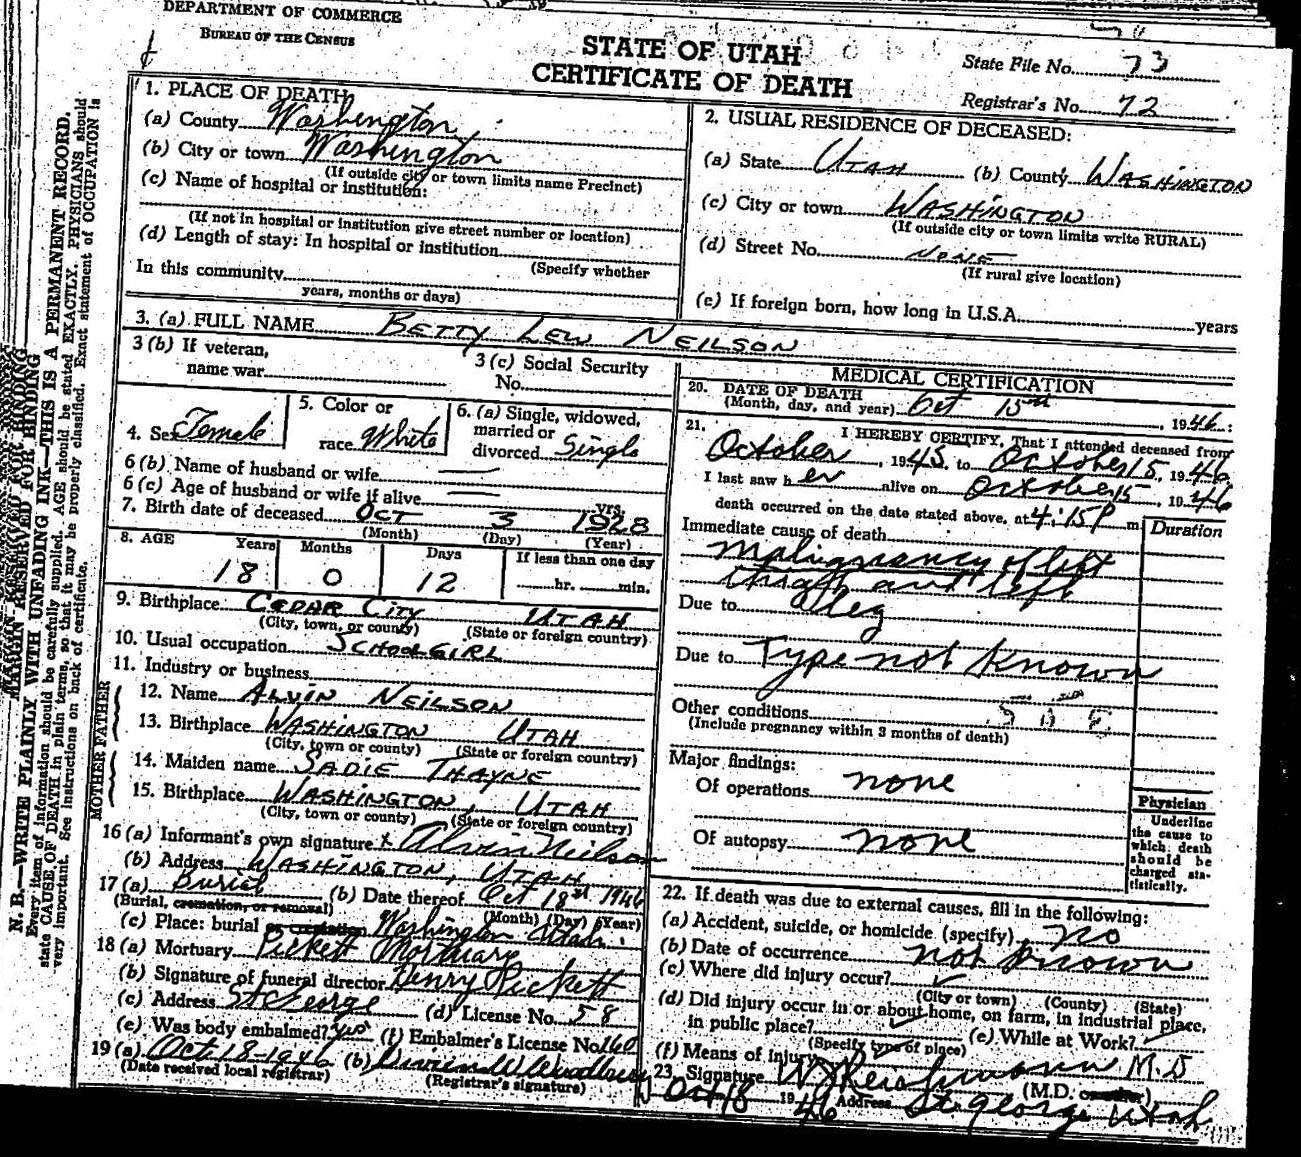 DEPARTMENT OF COMMERCE
BUREAU OF THE CENSUS
STATE OF UTAH
CERTIFICATE OF DEATH
State File No. 73
Registrar's No. 72
N. B.—WRITE PLAINLY WITH UNFADING INK—THIS IS A PERMANENT RECORD.
MARGIN RESERVED FOR BINDING
Every item of information should be carefully supplied. AGE should be stated EXACTLY. PHYSICIANS should
state CAUSE OF DEATH in plain terms, so that it may be properly classified. Exact statement of OCCUPATION is
very important. See instructions on back of certificate.
1. PLACE OF DEATH
(a) County Washington
(b) City or town Washington
(If outside city or town limits name Precinct)
(c) Name of hospital or institution:
(If not in hospital or institution give street number or location)
(d) Length of stay: In hospital or institution
(Specify whether
In this community
years, months or days)
2. USUAL RESIDENCE OF DECEASED:
(a) State UTAH (b) County WASHINGTON
(c) City or town WASHINGTON
(If outside city or town limits write RURAL)
(d) Street No. NONE
(If rural give location)
(e) If foreign born, how long in U.S.A. years
3. (a) FULL NAME BETTY LEW NEILSON
3 (b) If veteran,
name war
3 (c) Social Security
No.
4. Sex Female
5. Color or
race White
6. (a) Single, widowed,
married or
divorced Single
6 (b) Name of husband or wife —
6 (c) Age of husband or wife if alive — yrs.
7. Birth date of deceased OCT 3 1928
(Month) (Day) (Year)
8. AGE Years Months Days If less than one day
18 0 12 hr. min.
9. Birthplace CEDAR CITY UTAH
(City, town, or county) (State or foreign country)
10. Usual occupation SCHOOLGIRL
11. Industry or business
FATHER
12. Name ALVIN NEILSON
13. Birthplace WASHINGTON UTAH
(City, town or county) (State or foreign country)
MOTHER
14. Maiden name SADIE THAYNE
15. Birthplace WASHINGTON, UTAH
(City, town or county) (State or foreign country)
16 (a) Informant's own signature x Alvin Neilson
(b) Address WASHINGTON, UTAH
17 (a) Burial (b) Date thereof Oct 18th 1946
(Burial, cremation, or removal) (Month) (Day) (Year)
(c) Place: burial or cremation Washington Utah
18 (a) Mortuary Pickett Mortuary
(b) Signature of funeral director Henry Pickett
(c) Address St George (d) License No. 58
(e) Was body embalmed? yes (f) Embalmer's License No. 160
19 (a) Oct 18-1946 (b)
(Date received local registrar) (Registrar's signature)
MEDICAL CERTIFICATION
20. DATE OF DEATH
(Month, day, and year) Oct 15th, 1946:
21. I HEREBY CERTIFY, That I attended deceased from
October, 1945, to October 15, 1946
I last saw her alive on October 15, 1946
death occurred on the date stated above, at 4:15 P m
Immediate cause of death
Duration
malignancy of left
thigh and left
Due to leg
Due to Type not known
Other conditions
(Include pregnancy within 3 months of death)
Major findings:
Of operations none
Of autopsy none
Physician
Underline
the cause to
which death
should be
charged sta-
tistically.
22. If death was due to external causes, fill in the following:
(a) Accident, suicide, or homicide (specify) no
(b) Date of occurrence not known
(c) Where did injury occur? ✓
(City or town) (County) (State)
(d) Did injury occur in or about home, on farm, in industrial place,
in public place? ✓ (e) While at Work? ✓
(Specify type of place)
(f) Means of Injury ✓
23. Signature M.D
(M.D. or other)
Oct 18 1946 Address St. George Utah